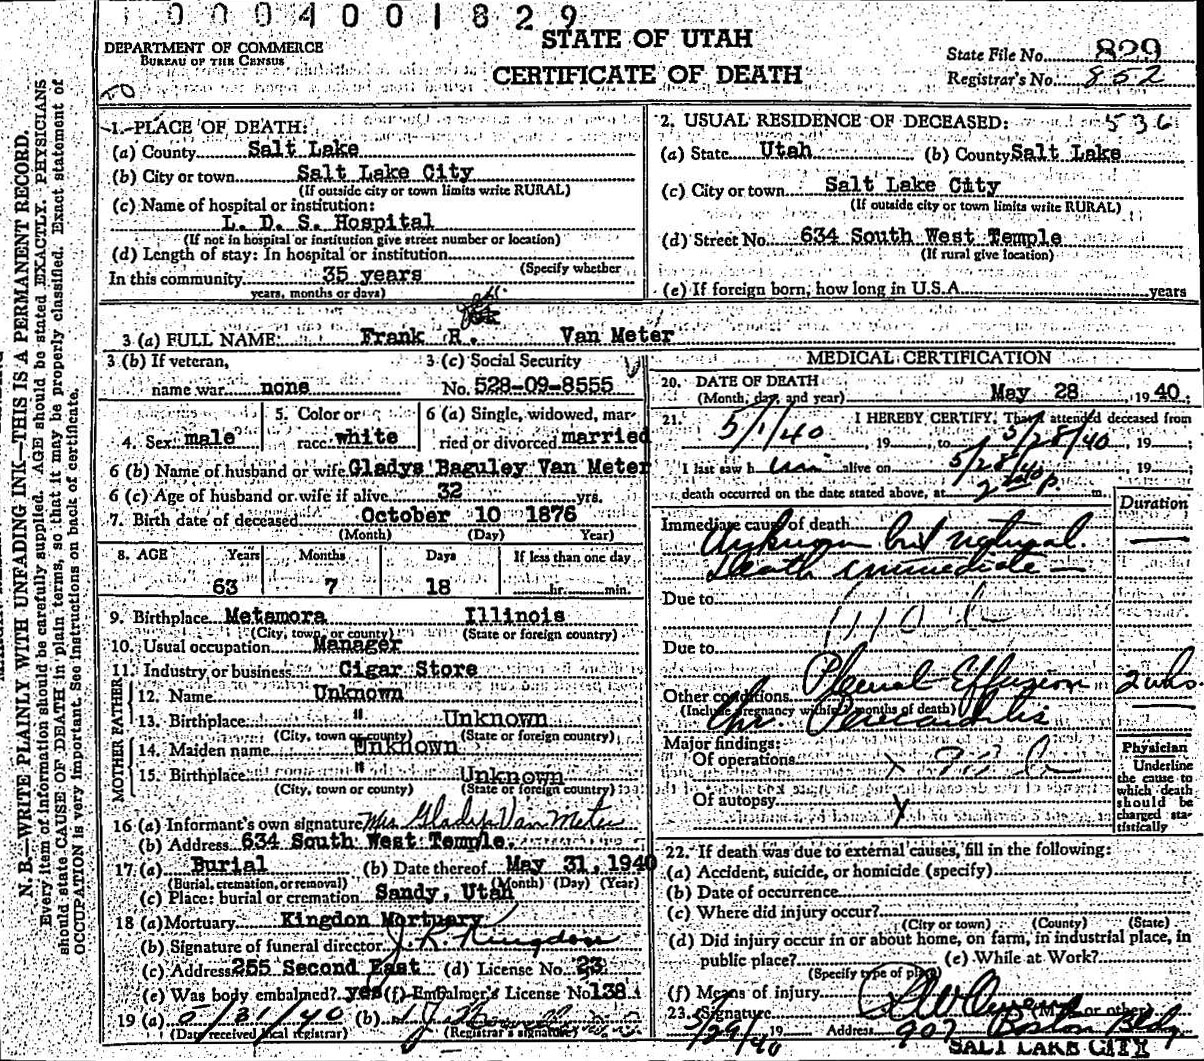 0004001829
DEPARTMENT OF COMMERCE
BUREAU OF THE CENSUS
STATE OF UTAH
CERTIFICATE OF DEATH
State File No. 829
Registrar's No. 852
N. B.—WRITE PLAINLY WITH UNFADING INK—THIS IS A PERMANENT RECORD.
Every item of information should be carefully supplied. AGE should be stated EXACTLY. PHYSICIANS
should state CAUSE OF DEATH in plain terms, so that it may be properly classified. Exact statement of
OCCUPATION is very important. See instructions on back of certificate.
1. PLACE OF DEATH:
(a) County Salt Lake
(b) City or town Salt Lake City
(If outside city or town limits write RURAL)
(c) Name of hospital or institution:
L. D. S. Hospital
(If not in hospital or institution give street number or location)
(d) Length of stay: In hospital or institution
(Specify whether
In this community 35 years
years, months or days)
2. USUAL RESIDENCE OF DECEASED: 536
(a) State Utah (b) County Salt Lake
(c) City or town Salt Lake City
(If outside city or town limits write RURAL)
(d) Street No. 634 South West Temple
(If rural give location)
(e) If foreign born, how long in U.S.A. years
3 (a) FULL NAME Frank R. Van Meter
3 (b) If veteran, 3 (c) Social Security
name war none No. 528-09-8555
4. Sex male 5. Color or race white 6 (a) Single, widowed, married or divorced married
6 (b) Name of husband or wife Gladys Baguley Van Meter
6 (c) Age of husband or wife if alive 32 yrs.
7. Birth date of deceased October 10 1876
(Month) (Day) Year)
8. AGE Years Months Days If less than one day
63 7 18 hr. min.
9. Birthplace Metamora Illinois
(City, town, or county) (State or foreign country)
10. Usual occupation Manager
11. Industry or business Cigar Store
FATHER
12. Name Unknown
13. Birthplace " Unknown
(City, town or county) (State or foreign country)
MOTHER
14. Maiden name Unknown
15. Birthplace " Unknown
(City, town or county) (State or foreign country)
16 (a) Informant's own signature Mrs Gladys Van Meter
(b) Address 634 South West Temple.
17 (a) Burial (b) Date thereof May 31, 1940
(Burial, cremation, or removal) (Month) (Day) (Year)
(c) Place: burial or cremation Sandy, Utah
18 (a) Mortuary Kingdon Mortuary
(b) Signature of funeral director J. R. Kingdon
(c) Address 255 Second East (d) License No. 23
(e) Was body embalmed? yes (f) Embalmer's License No 138
19 (a) 5/31/40 (b)
(Date received local registrar) (Registrar's signature)
MEDICAL CERTIFICATION
20. DATE OF DEATH
(Month, day, and year) May 28 19 40.
21. I HEREBY CERTIFY, That I attended deceased from
5/1/40 19 , to 5/28/40, 19
I last saw h im alive on 5/28/40, 19
death occurred on the date stated above, at m.
Duration
Immediate cause of death
Unknown but natural
Death immediate —
Due to
Due to
Other conditions Pleural Effusion 2 wks.
(Include pregnancy within 3 months of death)
Chr. Pericarditis
Major findings:
Of operations
Of autopsy
Physician
Underline
the cause to
which death
should be
charged sta-
tistically
22. If death was due to external causes, fill in the following:
(a) Accident, suicide, or homicide (specify)
(b) Date of occurrence
(c) Where did injury occur?
(City or town) (County) (State)
(d) Did injury occur in or about home, on farm, in industrial place, in
public place? (e) While at Work?
(Specify type of place)
(f) Means of injury
23. Signature (M.D. or other)
5/29/40 19 Address 907 Boston Bldg
SALT LAKE CITY